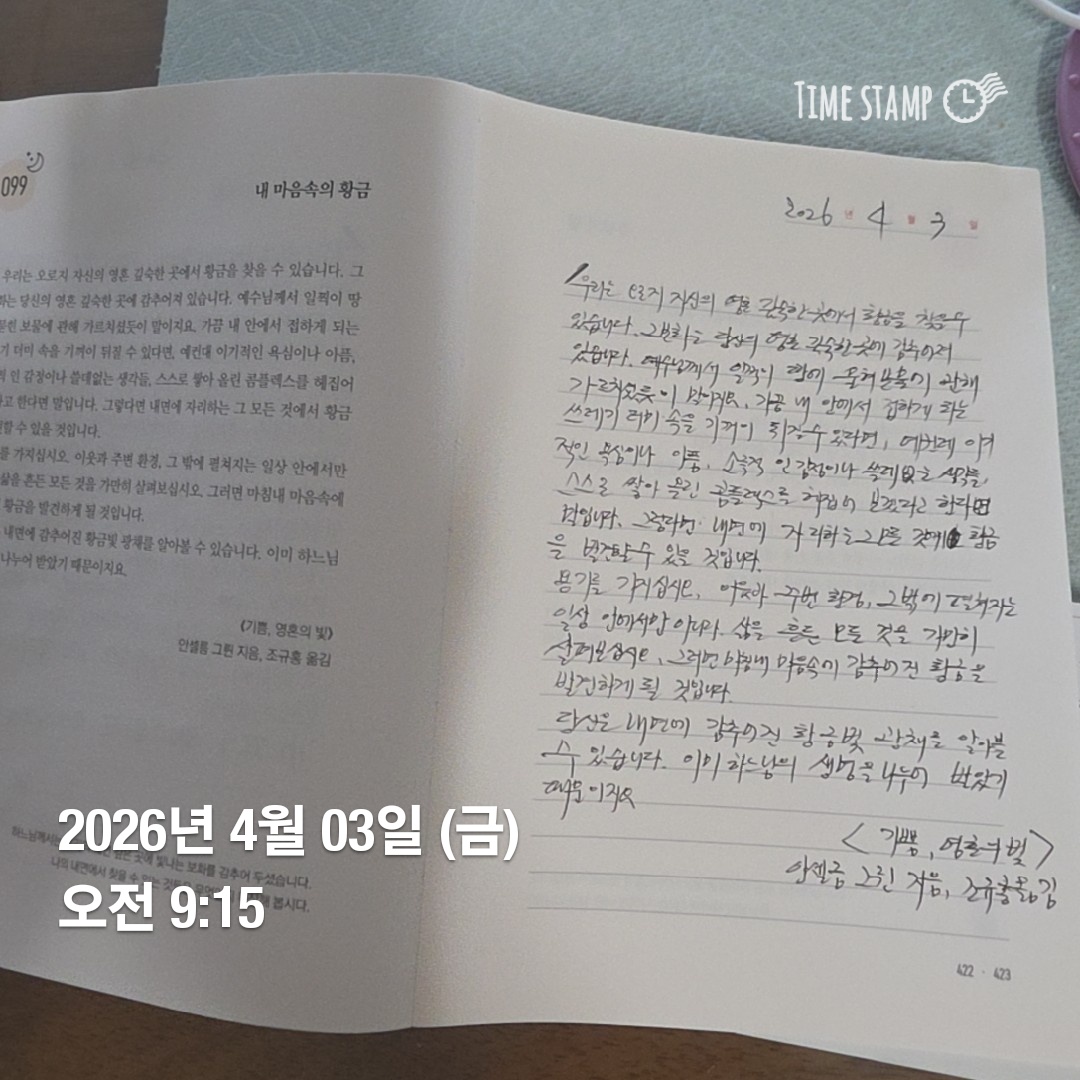 TIME STAMP
099
내 마음속의 황금
우리는 오로지 자신의 영혼 깊숙한 곳에서 황금을 찾을 수 있습니다. 그
화는 당신의 영혼 깊숙한 곳에 감추어져 있습니다. 예수님께서 일찍이 땅
힌 보물에 관해 가르치셨듯이 말이지요. 가끔 내 안에서 접하게 되는
기 더미 속을 기꺼이 뒤질 수 있다면, 예컨대 이기적인 욕심이나 아픔,
적인 감정이나 쓸데없는 생각들, 스스로 쌓아 올린 콤플렉스를 헤집어
고 한다면 말입니다. 그렇다면 내면에 자리하는 그 모든 것에서 황금
할 수 있을 것입니다.
를 가지십시오. 이웃과 주변 환경, 그 밖에 펼쳐지는 일상 안에서만
삶을 흔든 모든 것을 가만히 살펴보십시오. 그러면 마침내 마음속에
황금을 발견하게 될 것입니다.
내면에 감추어진 황금빛 광채를 알아볼 수 있습니다. 이미 하느님
나누어 받았기 때문이지요.
《기쁨, 영혼의 빛》
안셀름 그륀 지음, 조규홍 옮김
하느님께서는 곳에 빛나는 보화를 감추어 두셨습니다.
나의 내면에서 찾을 수 있는 봅시다.
2026년 4월 3일
우리는 오로지 자신의 영혼 깊숙한 곳에서 황금을 찾을 수
있습니다. 그 보화는 당신의 영혼 깊숙한 곳에 감추어져
있습니다. 예수님께서 일찍이 땅에 묻혀 보물에 관해
가르치셨듯이 말이지요. 가끔 내 안에서 접하게 되는
쓰레기 더미 속을 기꺼이 뒤질 수 있다면, 예컨데 이기
적인 욕심이나 아픔, 소극적 인 감정이나 쓸데없는 생각들,
스스로 쌓아 올린 콤플렉스를 헤집어 보겠다고 한다면
말입니다. 그렇다면 내면에 자리하는 그 모든 것에 황금
을 발견할 수 있을 것입니다.
용기를 가지십시오. 이웃과 주변 환경, 그 밖에 펼쳐지는
일상 안에서만 아니라 삶을 흔든 모든 것을 가만히
살펴보십시오. 그러면 마침내 마음속에 감추어진 황금을
발견하게 될 것입니다.
당신은 내면에 감추어진 황금빛 광채를 알아볼
수 있습니다. 이미 하느님의 생명을 나누어 받았기
때문이지요
<기쁨, 영혼의 빛>
안셀름 그륀 지음, 조규홍 옮김
422 · 423
2026년 4월 03일 (금)
오전 9:15